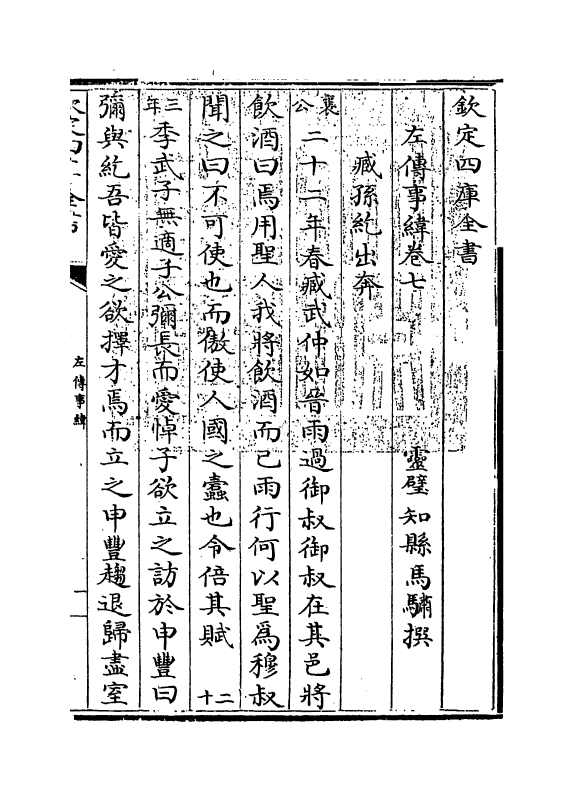 欽定四庫全書
左傳事緯卷七
靈璧知縣馬驌撰
臧孫紇出奔
襄公二十二年春臧武仲如晉雨過御叔御叔在其邑將
飲酒曰焉用聖人我將飲酒而己雨行何以聖爲穆叔
聞之曰不可使也而傲使人國之蠹也令倍其賦 二十
三年季武子無適子公彌長而愛悼子欲立之訪於申豐曰
彌與紇吾皆愛之欲擇才焉而立之申豐趨退歸盡室
欽定四庫全書
左傳事緯
一